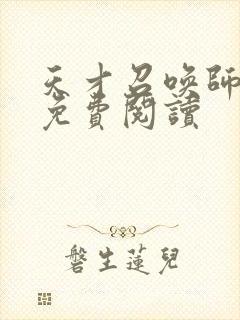 天才召喚師
免費閱讀
磐生蓮兒